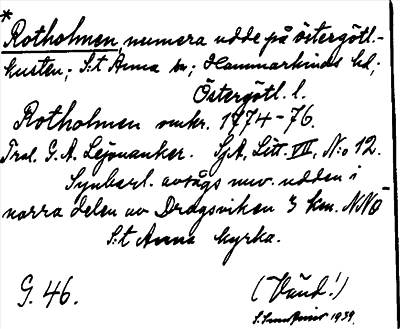 *
Rotholmen, numera udde på östergötl.-
kusten; S:t Anna sn; Hammarkinds hd;
Östergötl. l.
Rotholmen omkr. 1774-76.
Trol. G. A. Lejonanker. SjA, Litt. VII, N:o 12.
Synberl. avsågs nuv. udden i
norra delen av Dragsviken 3 km. NNO
S:t Anna kyrka.
G. 46. (Vänd!)
1939.